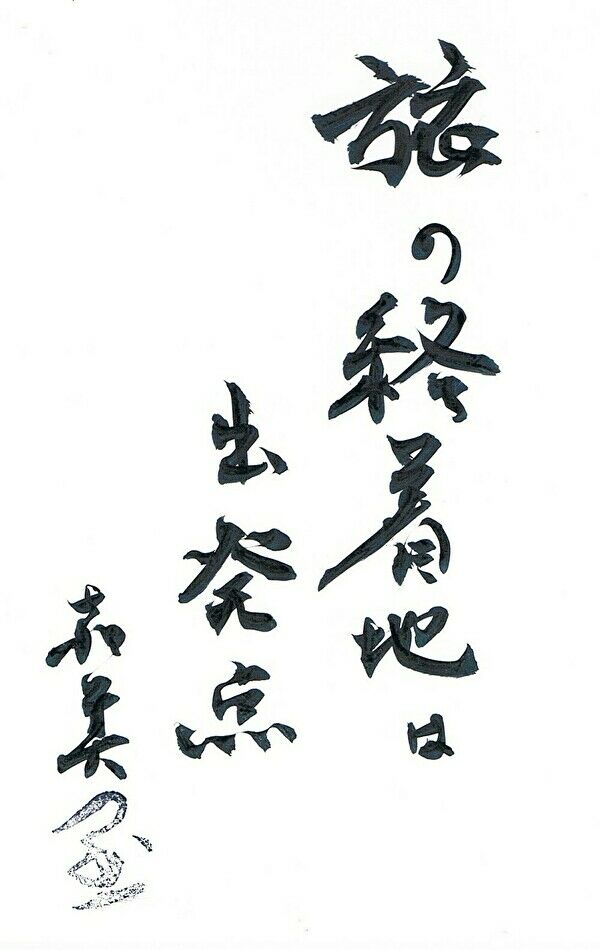 旅の終着地は
出発点